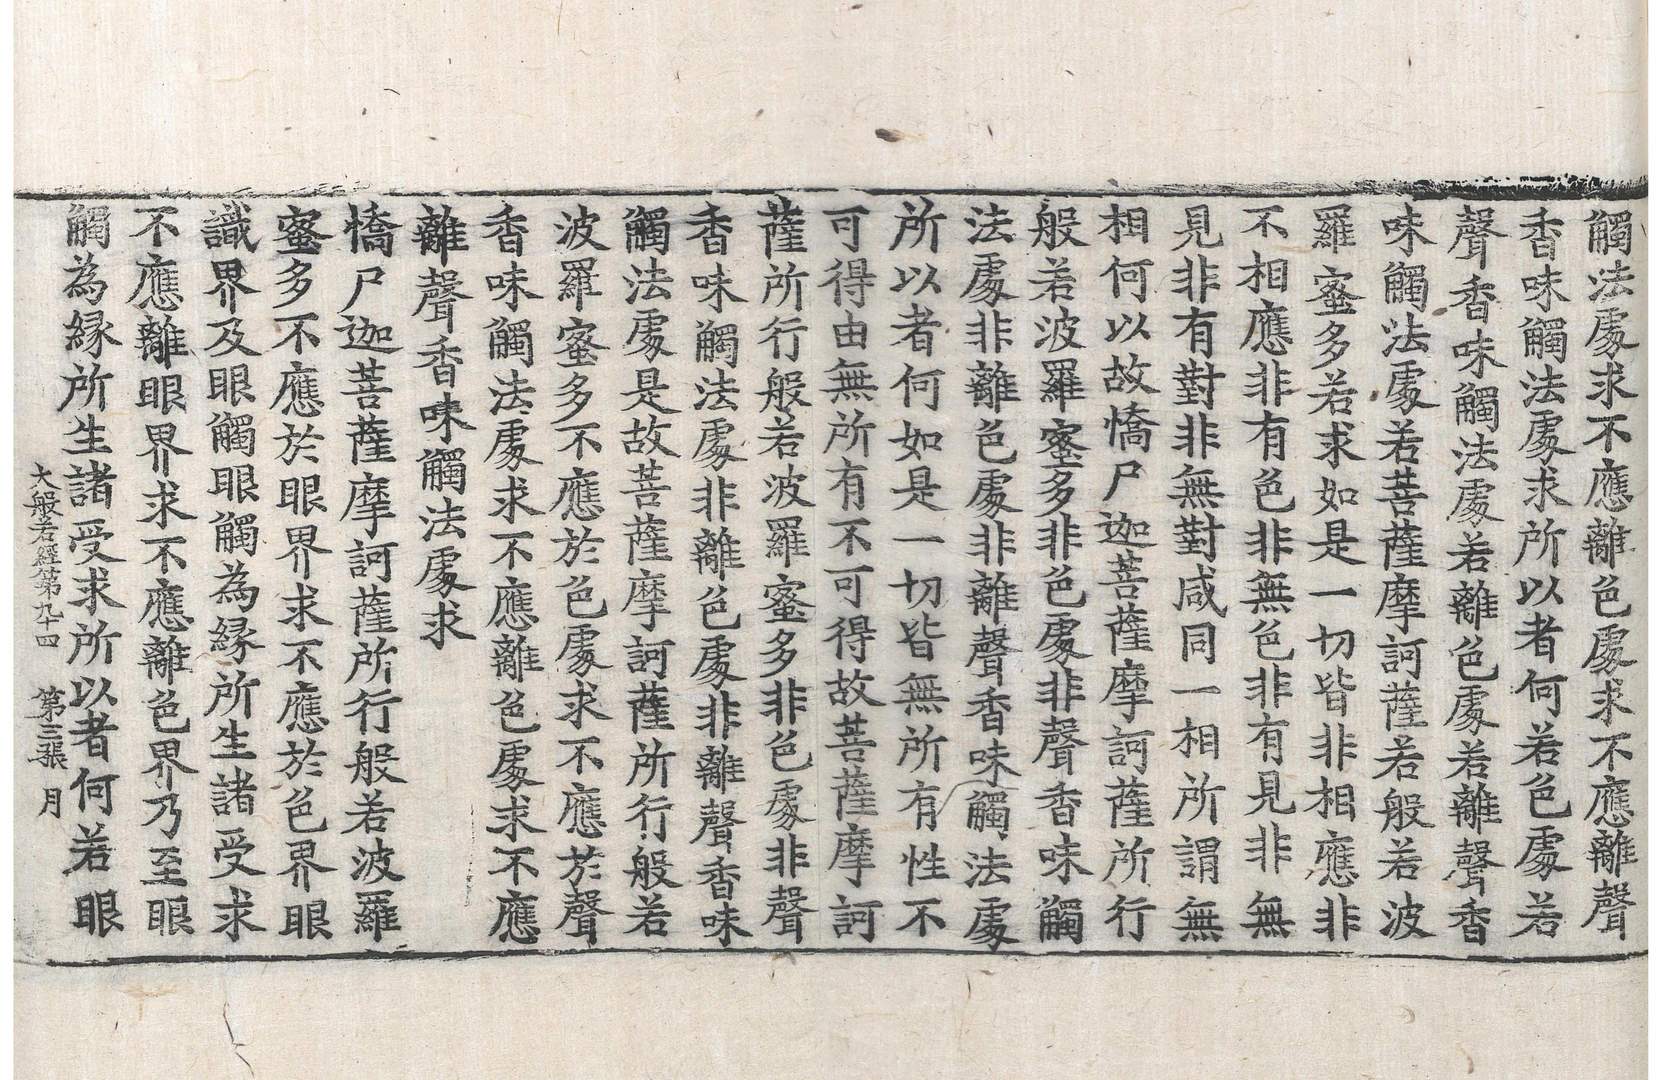 觸法處求不應離色處求不應離聲
香味觸法處求所以者何若色處若
聲香味觸法處若離色處若離聲香
味觸法處若菩薩摩訶薩若般若波
羅蜜多若求如是一切皆非相應非
不相應非有色非無色非有見非無
見非有對非無對咸同一相所謂無
相何以故憍尸迦菩薩摩訶薩所行
般若波羅蜜多非色處非聲香味觸
法處非離色處非離聲香味觸法處
所以者何如是一切皆無所有性不
可得由無所有不可得故菩薩摩訶
薩所行般若波羅蜜多非色處非聲
香味觸法處非離色處非離聲香味
觸法處是故菩薩摩訶薩所行般若
波羅蜜多不應於色處求不應於聲
香味觸法處求不應離色處求不應
離聲香味觸法處求
憍尸迦菩薩摩訶薩所行般若波羅
蜜多不應於眼界求不應於色界眼
識界及眼觸眼觸為緣所生諸受求
不應離眼界求不應離色界乃至眼
觸為緣所生諸受求所以者何若眼
大般若經第九十四 第三張 月